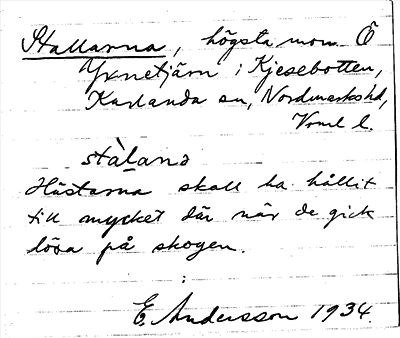 Stallarna, högsta mon Ö
Yxnetjärn i Kjesebotten,
Karlanda sn, Nordmarks hd,
Vrml l.
stàlanɔ
Hästarna skall ha hållit
till mycket där när de gick
lösa på skogen.
E. Andersson 1934.